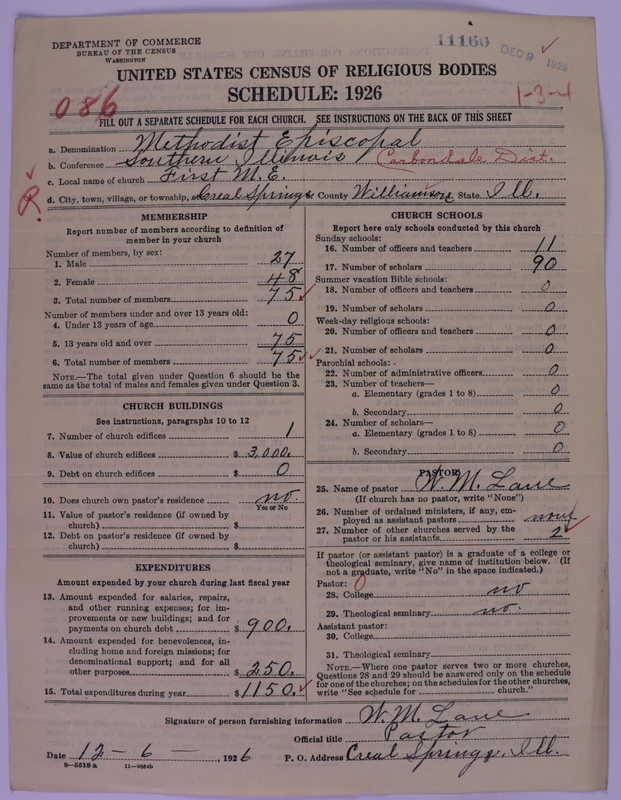 DEPARTMENT OF COMMERCE
BUREAU OF THE CENSUS
WASHINGTON
11160
DEC 9 1926
UNITED STATES CENSUS OF RELIGIOUS BODIES
SCHEDULE: 1926
086
1-3-4
FILL OUT A SEPARATE SCHEDULE FOR EACH CHURCH. SEE INSTRUCTIONS ON THE BACK OF THIS SHEET
a. Denomination Methodist Episcopal
b. Conference Southern Illinois Carbondale Dist.
c. Local name of church First M.E.
d. City, town, village, or township, Creal Springs County Williamson State Ill.
MEMBERSHIP
Report number of members according to definition of member in your church
Number of members, by sex:
1. Male 27
2. Female 48
3. Total number of members 75
Number of members under and over 13 years old:
4. Under 13 years of age 0
5. 13 years old and over 75
6. Total number of members 75
NOTE.—The total given under Question 6 should be the
same as the total of males and females given under Question 3.
CHURCH BUILDINGS
See instructions, paragraphs 10 to 12
7. Number of church edifices 1
8. Value of church edifices $ 3,000.
9. Debt on church edifices $ 0
10. Does church own pastor's residence no
Yes or No
11. Value of pastor's residence (if owned by
church) $
12. Debt on pastor's residence (if owned by
church) $
EXPENDITURES
Amount expended by your church during last fiscal year
13. Amount expended for salaries, repairs,
and other running expenses; for im-
provements or new buildings; and for
payments on church debt $ 900.
14. Amount expended for benevolences, in-
cluding home and foreign missions; for
denominational support; and for all
other purposes $ 250.
15. Total expenditures during year $ 1150.
CHURCH SCHOOLS
Report here only schools conducted by this church
Sunday schools:
16. Number of officers and teachers 11
17. Number of scholars 90
Summer vacation Bible schools:
18. Number of officers and teachers 0
19. Number of scholars 0
Week-day religious schools:
20. Number of officers and teachers 0
21. Number of scholars 0
Parochial schools:
22. Number of administrative officers 0
23. Number of teachers—
a. Elementary (grades 1 to 8) 0
b. Secondary 0
24. Number of scholars—
a. Elementary (grades 1 to 8) 0
b. Secondary 0
PASTOR
25. Name of pastor W. M. Lane
(If church has no pastor, write "None")
26. Number of ordained ministers, if any, em-
ployed as assistant pastors none
27. Number of other churches served by the
pastor or his assistants 2
If pastor (or assistant pastor) is a graduate of a college or
theological seminary, give name of institution below. (If
not a graduate, write "No" in the space indicated.)
Pastor: 0
28. College no
29. Theological seminary no.
Assistant pastor:
30. College
31. Theological seminary
NOTE.—Where one pastor serves two or more churches,
Questions 28 and 29 should be answered only on the schedule
for one of the churches; on the schedules for the other churches,
write "See schedule for church."
Signature of person furnishing information W. M. Lane
Official title Pastor
Date 12-6-, 1926 P. O. Address Creal Springs, Ill.
8—5518 a 11—9054b